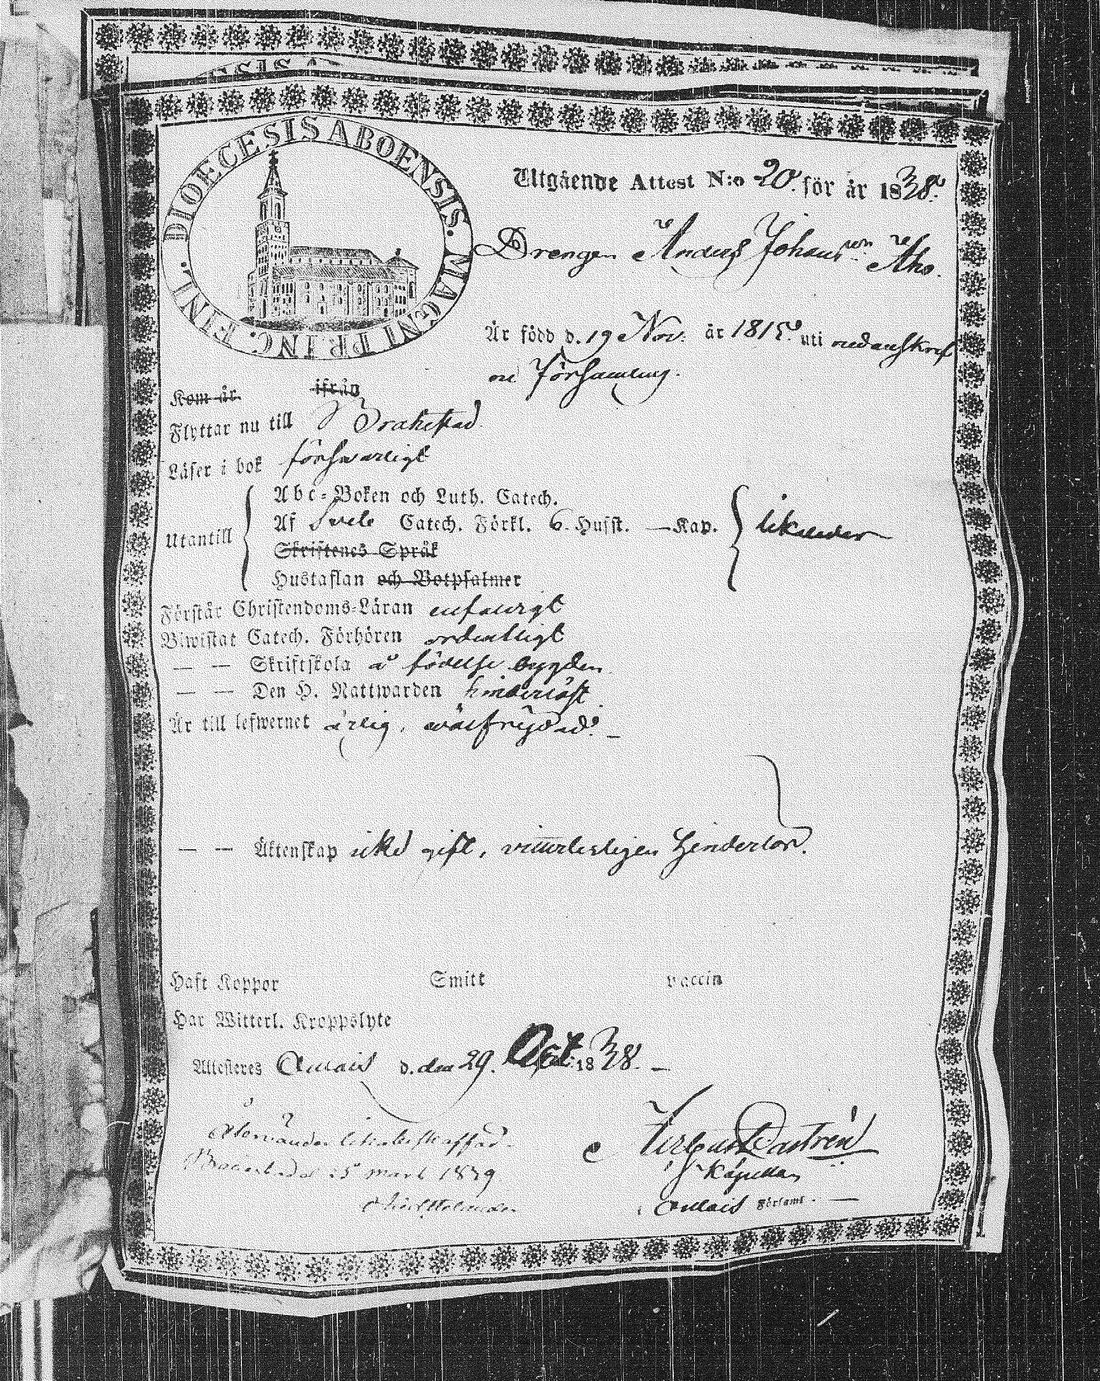 DIOECESIS ABOENSIS. MAGNI PRINC. FINL.
Utgående Attest N:o 20. för år 1838.
Drengen Anders Johansson Aho.
Är född d. 19 Nov. år 1815. uti nedanskrefn
en Församling.
Kom år ifrån
Flyttar nu till Brahestad
Läser i bok försvarligt
Utantill
Abc-Boken och Luth. Catech.
Af Catech. Förkl. 6. Husst. — Kap.
Skriftenes Språk
Hustaflan och Botpsalmer
likaledes
Förstår Christendoms-Läran enfaldigt
Biwistat Catech. Förhören ordentligt
— — Skriftskola å födelse bygden
— — Den H. Nattwarden hinderlöst
Är till lefwernet ärlig, wälfrejdad. —
— — Äktenskap icke gift, vitterligen hinderlös.
Haft Koppor Smitt vaccin
Har Witterl. Kroppslyte
Attesteras d. den 29. Oct. 1838. —
Castrén
Kapellan
Församl. —
Brahestad d. 25 mars 1839